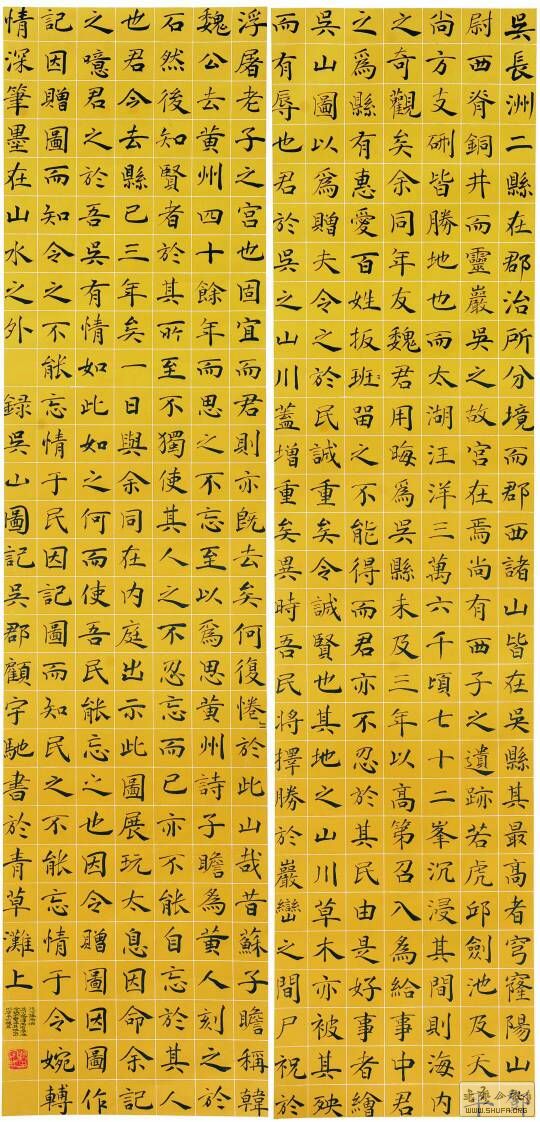 吳長洲二縣在郡治所分境而郡西諸山皆在吳縣其最高者穹窿陽山鄧
尉西脊銅井而靈巖吳之故宮在焉尚有西子之遺跡若虎邱劍池及天平
尚方支硎皆勝地也而太湖汪洋三萬六千頃七十二峯沉浸其間則海內
之奇觀矣余同年友魏君用晦爲吳縣未及三年以高第召入為給事中君
之爲縣有惠愛百姓扳班畱之不能得而君亦不忍於其民由是好事者繪
吳山圖以爲贈夫令之於民誠重矣令誠賢也其地之山川草木亦被其殃
而有辱也君於吳之山川蓋增重矣異時吾民將擇勝於巖巒之間尸祝於
浮屠老子之宮也固宜而君則亦既去矣何復惓〻於此山哉昔蘇子瞻稱韓
魏公去黃州四十餘年而思之不忘至以爲思黃州詩子瞻為黃人刻之於
石然後知賢者於其所至不獨使其人之不忍忘而已亦不能自忘於其人
也君今去縣已三年矣一日與余同在內庭出示此圖展玩太息因命余記
之噫君之於吾吳有情如此如之何而使吾民能忘之也因令贈圖因圖作
記因贈圖而知令之不能忘情于民因記圖而知民之不能忘情于令婉轉
情深筆墨在山水之外 錄吳山圖記吳郡顧宇馳書於青草灘上
WWW.SHUFA.ORG